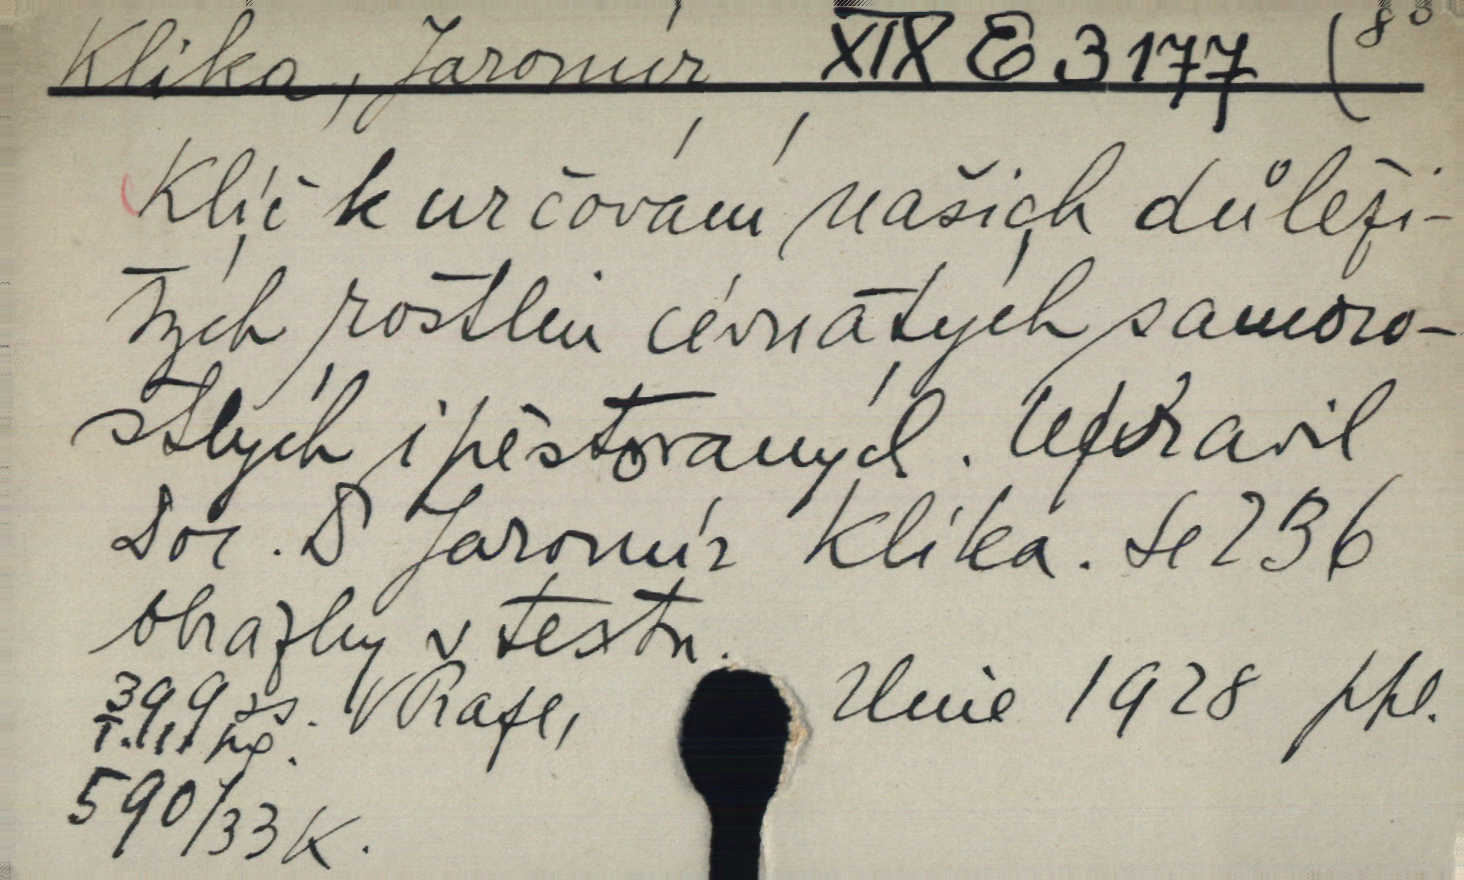 Klika, Jaromír XIX E 3177 (8°
Klíč k určování našich důleži-
tých rostlin cévnatých samoro-
stlých i pěstovaných. Upravil
Doc. Dr Jaromír Klika. Se 236
obrazky v textu.
399 ss. V Praze, Unie 1928 ppl.
590/33 K.